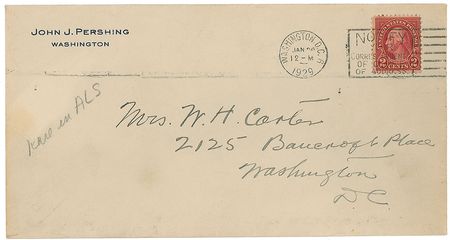 JOHN J. PERSHING
WASHINGTON
WASHINGTON, D.C.
JAN
12-M
1929
NO
CORRES
OF
OF
2 CENTS 2
in ALS
Mrs. W. H. Carter
2125 Bancroft Place
Washington
D.C.